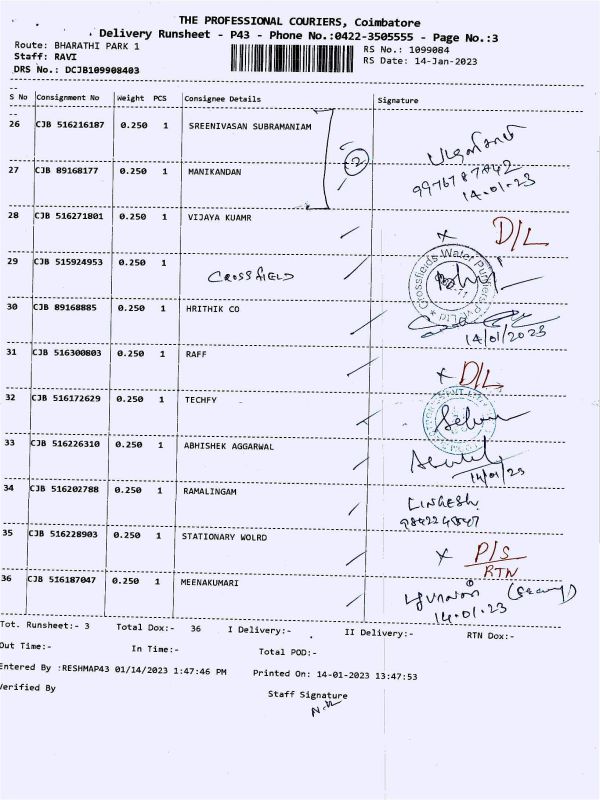 THE PROFESSIONAL COURIERS, Coimbatore
Delivery Runsheet - P43 - Phone No.:0422-3505555 - Page No.:3
Route: BHARATHI PARK 1
RS No.: 1099084
Staff: RAVI
RS Date: 14-Jan-2023
DRS No.: DCJB109908403
S No Consignment No Weight PCS Consignee Details Signature
26 CJB 516216187 0.250 1 SREENIVASAN SUBRAMANIAM
2
27 CJB 89168177 0.250 1 MANIKANDAN 9976787842
14-01-23
28 CJB 516271801 0.250 1 VIJAYA KUAMR x D/L
29 CJB 515924953 0.250 1 CROSSFIELD Crossfields Water Purifiers
30 CJB 89168885 0.250 1 HRITHIK CO
14/01/2023
31 CJB 516300803 0.250 1 RAFF x D/L
32 CJB 516172629 0.250 1 TECHFY
33 CJB 516226310 0.250 1 ABHISHEK AGGARWAL
14/01/23
34 CJB 516202788 0.250 1 RAMALINGAM LINGESH
35 CJB 516228903 0.250 1 STATIONARY WOLRD x P/S
RTN
36 CJB 516187047 0.250 1 MEENAKUMARI
14-01-23
Tot. Runsheet:- 3 Total Dox:- 36 I Delivery:- II Delivery:- RTN Dox:-
Out Time:- In Time:- Total POD:-
Entered By :RESHMAP43 01/14/2023 1:47:46 PM Printed On: 14-01-2023 13:47:53
Verified By Staff Signature